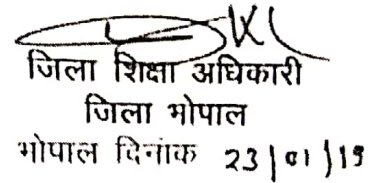 जिला शिक्षा अधिकारी
जिला भोपाल
भोपाल दिनांक 23/01/19